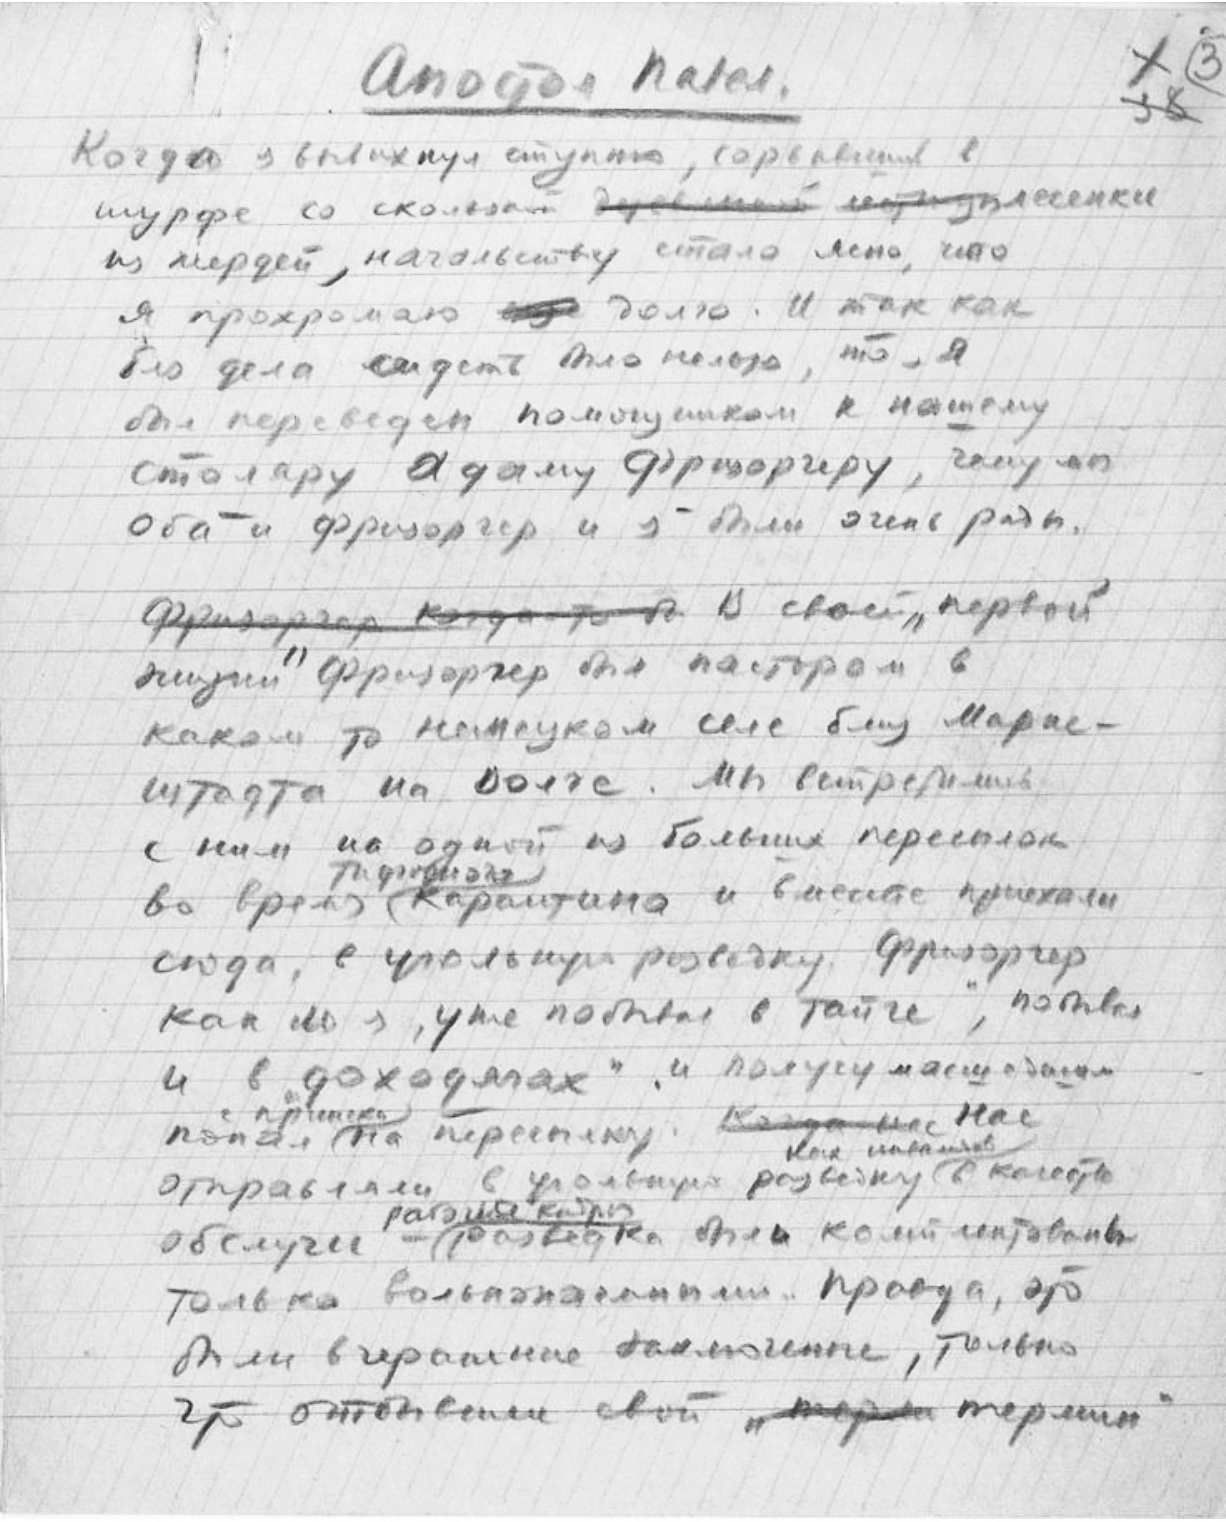 Апостол Павел.
3
38
Когда я вывихнул ступню, сорвавшись в
шурфе со скользкой лесенки
из жердей, начальству стало ясно, что
я прохромаю долго. И так как
без дела сидеть было нельзя, то я
был переведен помощником к нашему
столяру Адаму Фризоргеру, чему мы
оба - и Фризоргер и я - были очень рады.
Фризоргер когда-то б В своей „первой
жизни" Фризоргер был пастором в
каком то немецком селе близ Мариен-
штадта на Волге. Мы встретились
с ним на одной из больших пересылок
тифозного
во время карантина и вместе приехали
сюда, в угольную разведку. Фризоргер
как и я, уже побывал в тайге", побывал
и в „доходягах" и полусумасшедшим
с прииска
попал на пересылку. Когда нас Нас
как инвалидов
отправили в угольную разведку в качестве
рабочие кадры
обслуги - разведка были комплектованы
только вольнонаемными. Правда, это
были вчерашние заключенные, только
что отбывшие свой „термин"